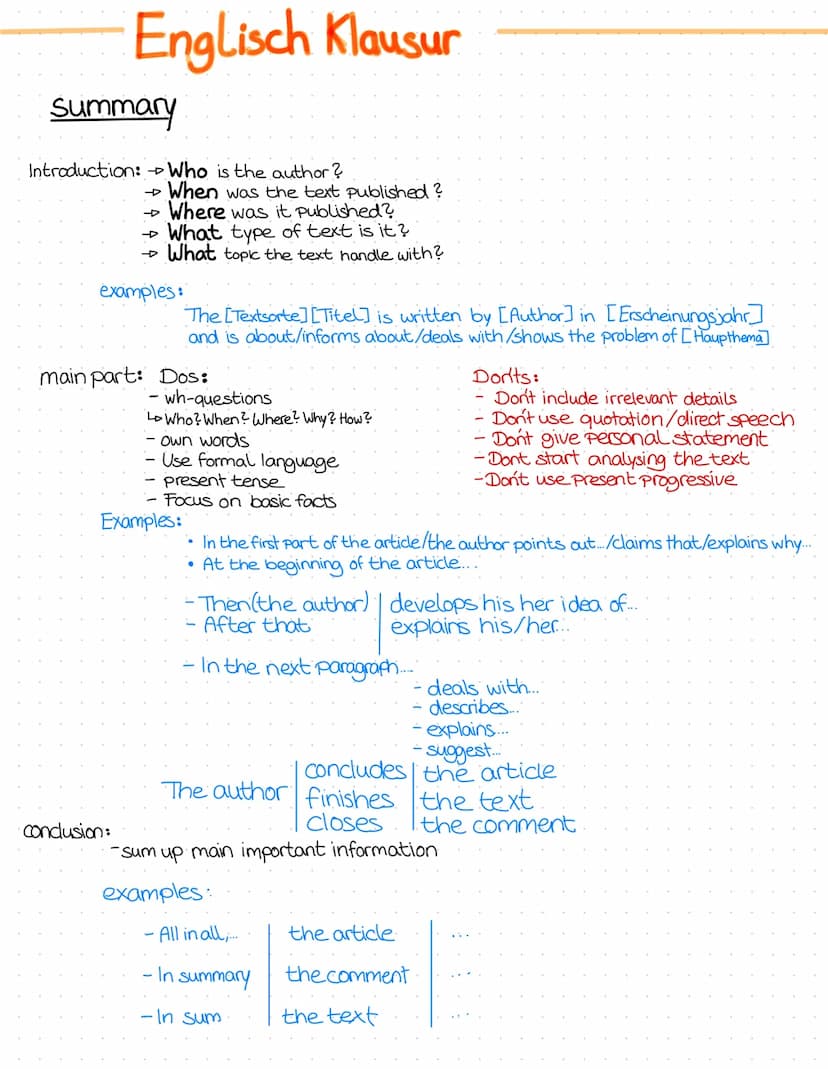 Englisch Klausur
summary
Introduction: → Who is the author?
→ When was the text published?
→ Where was it published?
→ What type of text is it?
→ What topic the text handle with?
examples:
The [Textsorte] [Titel] is written by [Author] in [Erscheinungsjahr]
and is about/informs about/deals with/shows the problem of [Haupthema]
main part: Dos:
- wh-questions
↳ Who? When? Where? Why? How?
- own words
- Use formal language
- present tense
- Focus on basic facts
Don'ts:
- Don't include irrelevant details
- Don't use quotation/direct speech
- Don't give personal statement
- Dont start analysing the text
- Don't use present progressive
Examples:
• In the first part of the article/the author points out.../claims that/explains why...
• At the beginning of the article...
- Then(the author) | develops his her idea of...
- After that | explains his/her...
- In the next paragraph...
- deals with...
- describes...
- explains...
- suggest...
concludes | the article
The author | finishes | the text
closes | the comment
conclusion:
- sum up main important information
examples:
- All in all,... | the article | ...
- In summary | the comment | ...
- In sum | the text | ...